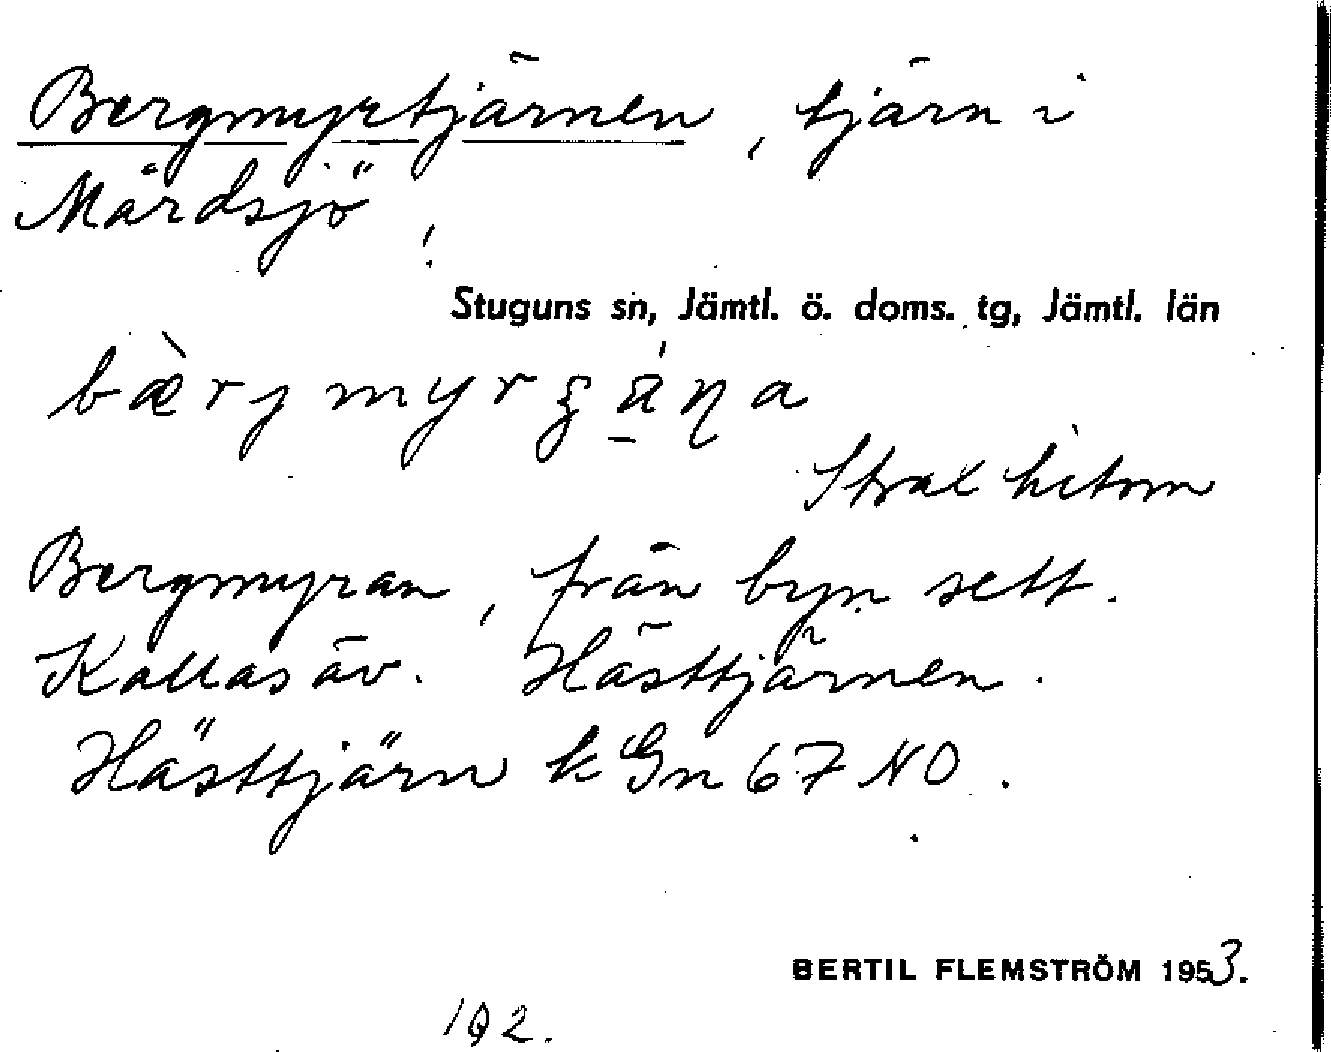 Bergmyrtjärnen, tjärn i
Mårdsjö,
Stuguns sn, Jämtl. ö. doms. tg, Jämtl. län
Strax hitom
Bergmyran, från byn sett.
Kallas äv. Hästtjärnen.
Hästtjärn k Gn 67 NO.
BERTIL FLEMSTRÖM 1953.
192.